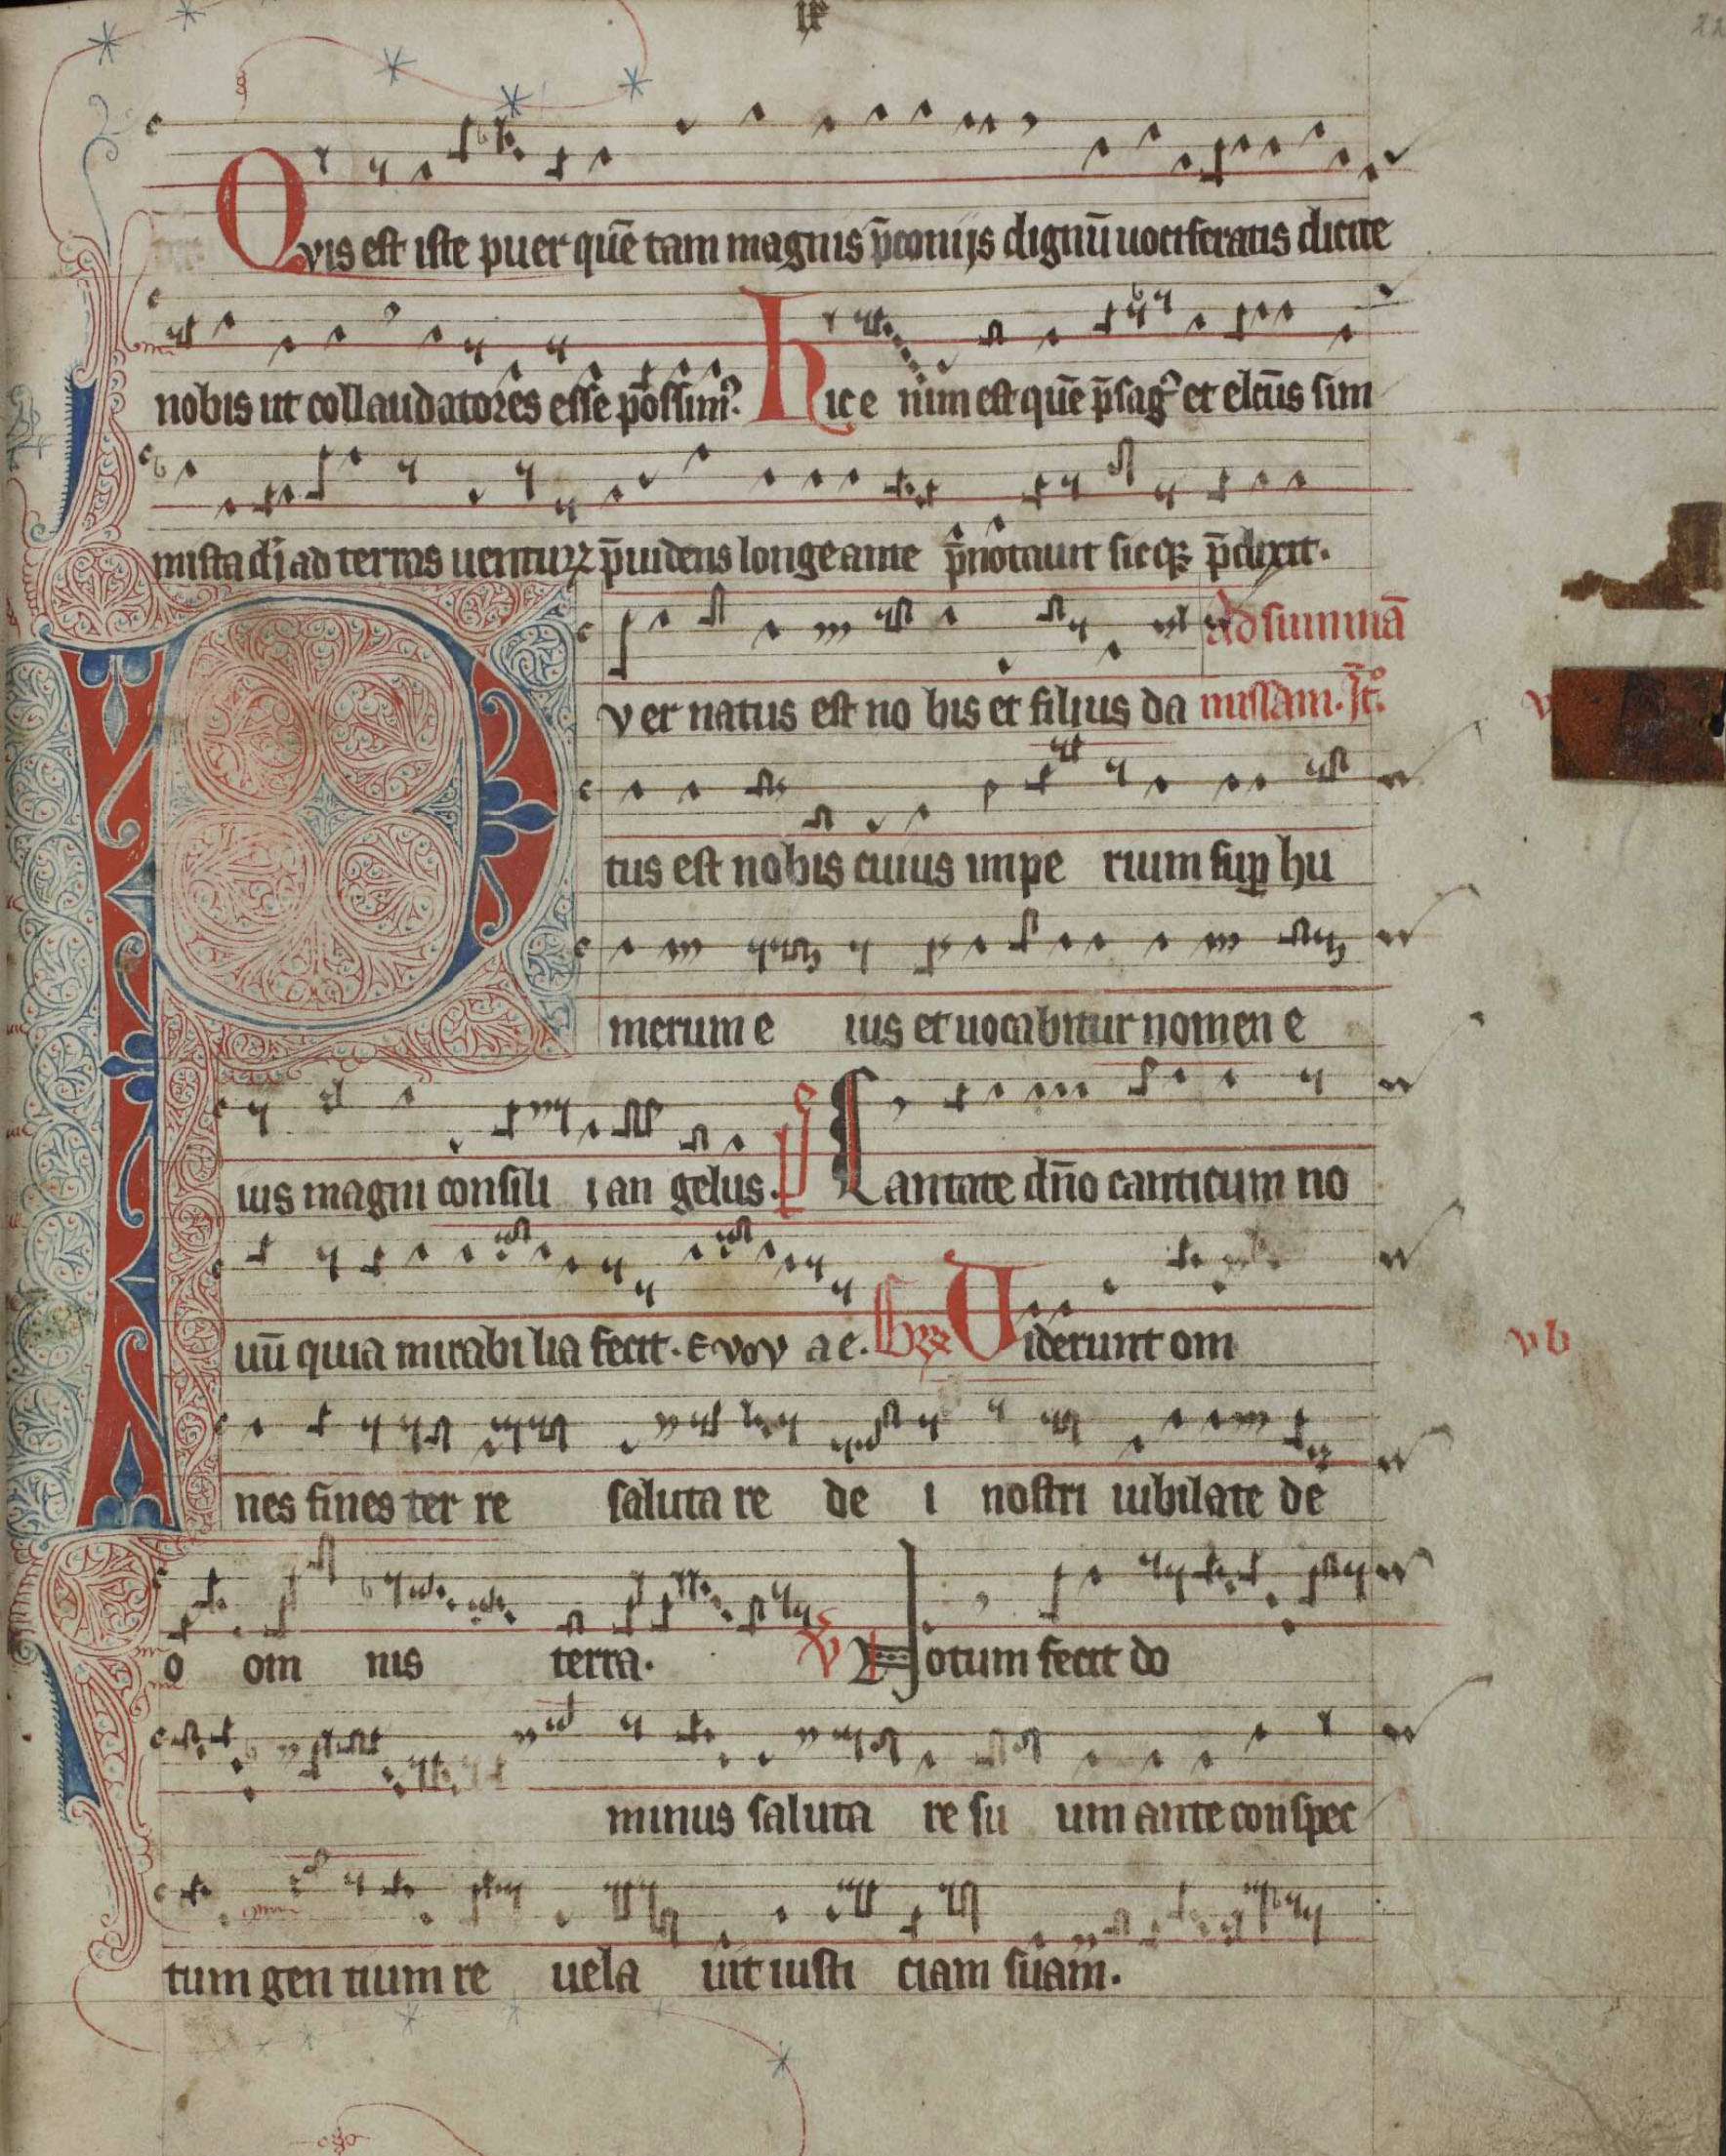 ix
22
Qvis est iste puer quē tam magnis p̄conijs dignū uociferatis dicite
nobis ut collaudatores esse possim⁹. Hic e nim est quē p̄sag⁹ et elect⁹ sim
mista di ad terras uenturꝝ p̄uidens longe ante p̄notauit sicqꝫ p̄dixit.
Ad summā
Pver natus est no bis et filius da missam. It̄.
tus est nobis cuius impe rium suꝑ hu
merum e ius et uocabitur nomen e
ius magni consili i an gelus. ps Cantate dn̄o canticum no
uū quia mirabi lia fecit. Evov ae. Gr̄ Viderunt om
nes fines ter re saluta re de i nostri iubilate de
o om nis terra. V Notum fecit do
minus saluta re su um ante conspec
tum gen tium re uela uit iusti ciam suam.
v
vb